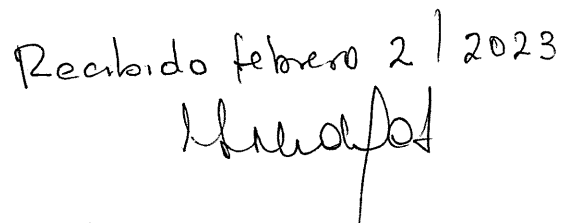 Recibido febrero 2 | 2023